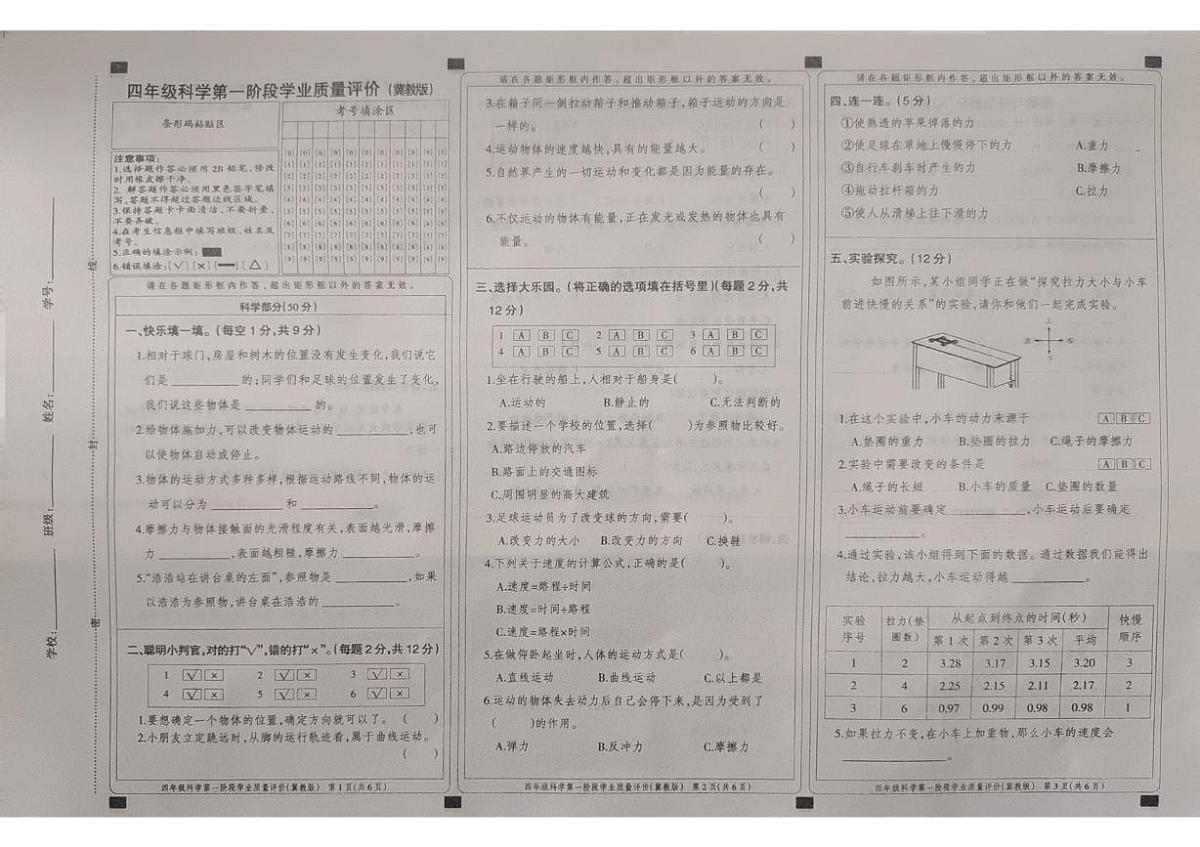 学号:
姓名:
班级:
学校:
线
封
密
四年级科学第一阶段学业质量评价(冀教版)
条形码粘贴区
考号填涂区
注意事项:
1.选择题作答必须用2B铅笔,修改
时用橡皮擦干净。
2.解答题作答必须用黑色签字笔填
写,答题不得超过答题边线区域。
3.保持答题卡卡面清洁,不要折叠、
不要弄破。
4.在考生信息框中填写班级、姓名及
考号。
5.正确的填涂示例:
6.错误填涂:[√][×][━][△]
请在各题矩形框内作答,超出矩形框以外的答案无效。
科学部分(50分)
一、快乐填一填。(每空1分,共9分)
1.相对于球门,房屋和树木的位置没有发生变化,我们说它
们是________的;同学们和足球的位置发生了变化,
我们说这些物体是________的。
2.给物体施加力,可以改变物体运动的________,也可
以使物体启动或停止。
3.物体的运动方式多种多样,根据运动路线不同,物体的运
动可以分为________和________。
4.摩擦力与物体接触面的光滑程度有关,表面越光滑,摩擦
力________,表面越粗糙,摩擦力________。
5.“浩浩站在讲台桌的左面”,参照物是________,如果
以浩浩为参照物,讲台桌在浩浩的________。
二、聪明小判官,对的打“√”,错的打“×”。(每题2分,共12分)
1 √ × 2 √ × 3 √ ×
4 √ × 5 √ × 6 √ ×
1.要想确定一个物体的位置,确定方向就可以了。( )
2.小朋友立定跳远时,从脚的运行轨迹看,属于曲线运动。
( )
四年级科学第一阶段学业质量评价(冀教版) 第1页(共6页)
请在各题矩形框内作答,超出矩形框以外的答案无效。
3.在箱子同一侧拉动箱子和推动箱子,箱子运动的方向是
一样的。 ( )
4.运动物体的速度越快,具有的能量越大。 ( )
5.自然界产生的一切运动和变化都是因为能量的存在。
( )
6.不仅运动的物体有能量,正在发光或发热的物体也具有
能量。 ( )
三、选择大乐园。(将正确的选项填在括号里)(每题2分,共
12分)
1 A B C 2 A B C 3 A B C
4 A B C 5 A B C 6 A B C
1.坐在行驶的船上,人相对于船身是( )。
A.运动的 B.静止的 C.无法判断的
2.要描述一个学校的位置,选择( )为参照物比较好。
A.路边停放的汽车
B.路面上的交通图标
C.周围明显的高大建筑
3.足球运动员为了改变球的方向,需要( )。
A.改变力的大小 B.改变力的方向 C.换鞋
4.下列关于速度的计算公式,正确的是( )。
A.速度=路程÷时间
B.速度=时间÷路程
C.速度=路程×时间
5.在做仰卧起坐时,人体的运动方式是( )。
A.直线运动 B.曲线运动 C.以上都是
6.运动的物体失去动力后自己会停下来,是因为受到了
( )的作用。
A.弹力 B.反冲力 C.摩擦力
四年级科学第一阶段学业质量评价(冀教版) 第2页(共6页)
请在各题矩形框内作答,超出矩形框以外的答案无效。
四、连一连。(5分)
①使熟透的苹果掉落的力
②使足球在草地上慢慢停下的力 A.重力
③自行车刹车时产生的力 B.摩擦力
④拖动拉杆箱的力 C.拉力
⑤使人从滑梯上往下滑的力
五、实验探究。(12分)
如图所示,某小组同学正在做“探究拉力大小与小车
前进快慢的关系”的实验,请你和他们一起完成实验。
上
左 右
下
1.在这个实验中,小车的动力来源于 A B C
A.垫圈的重力 B.垫圈的拉力 C.绳子的摩擦力
2.实验中需要改变的条件是 A B C
A.绳子的长短 B.小车的质量 C.垫圈的数量
3.小车运动前要确定________,小车运动后要确定
________。
4.通过实验,该小组得到下面的数据。通过数据我们能得出
结论,拉力越大,小车运动得越________。
实验序号 拉力(垫圈数) 从起点到终点的时间(秒) 快慢顺序
第1次 第2次 第3次 平均
1 2 3.28 3.17 3.15 3.20 3
2 4 2.25 2.15 2.11 2.17 2
3 6 0.97 0.99 0.98 0.98 1
5.如果拉力不变,在小车上加重物,那么小车的速度会
________。
四年级科学第一阶段学业质量评价(冀教版) 第3页(共6页)